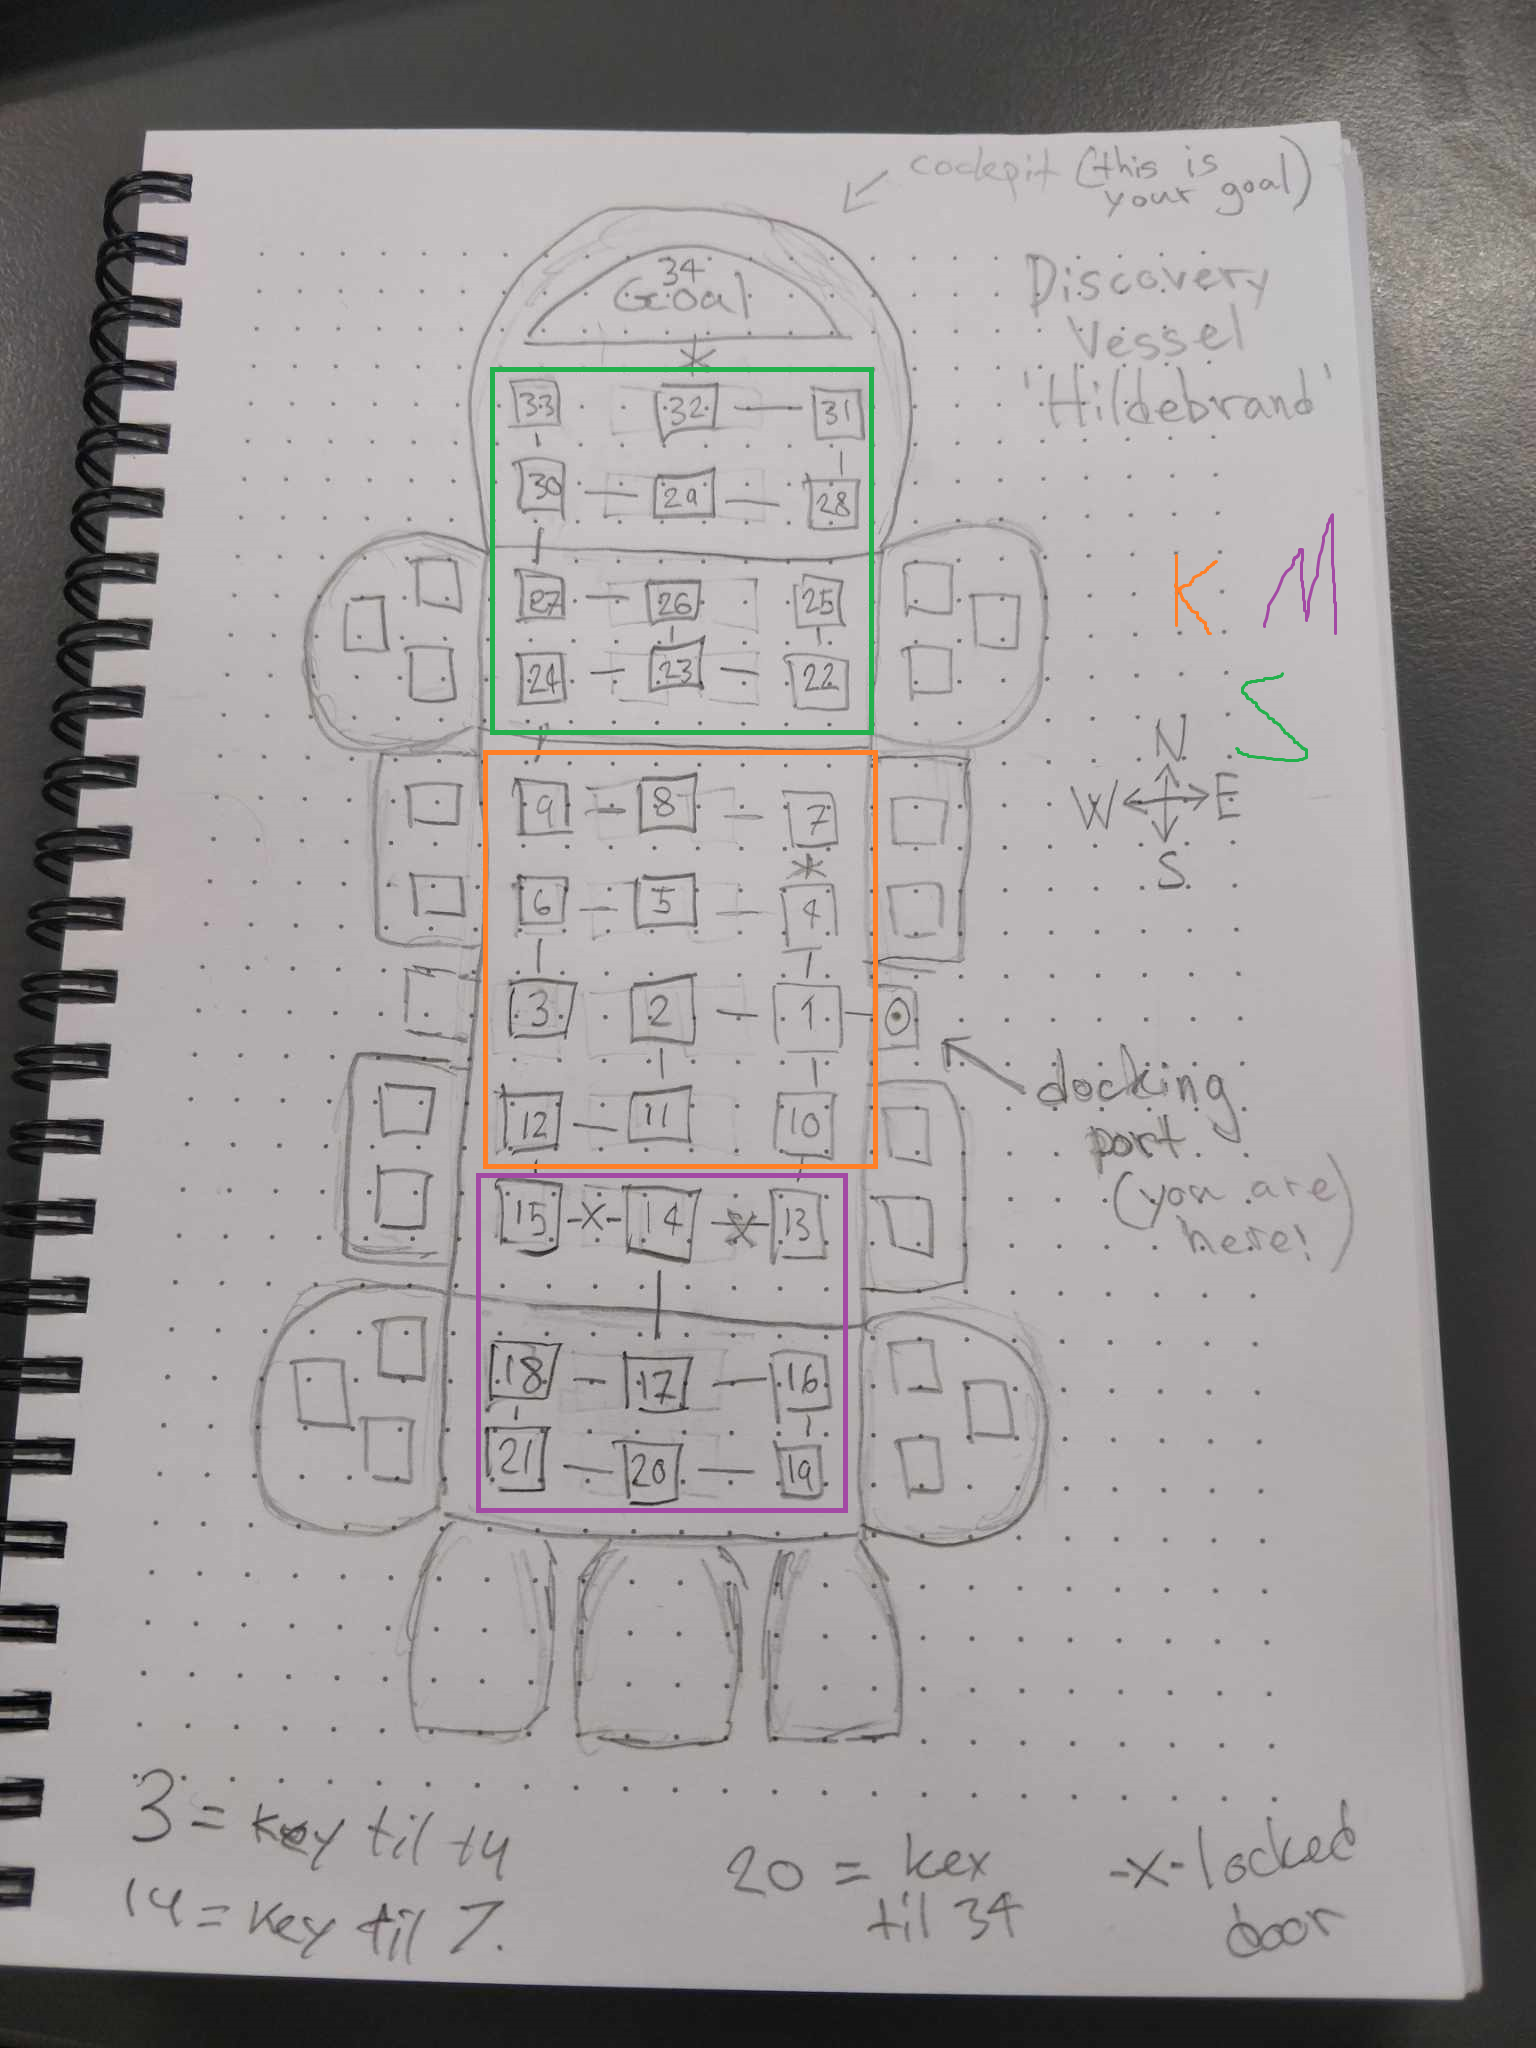 cockpit (this is
your goal)
Discovery
Vessel
'Hildebrand'
34
Goal
33 32 31
30 29 28
27 26 25
24 23 22
K M
S
N
W E
S
9 8 7
6 5 4
3 2 1 0
12 11 10
15 -x- 14 -x- 13
docking
port
(you are
here!)
18 17 16
21 20 19
3 = key til 14
14 = key til 7.
20 = key
til 34
-x- locked
door